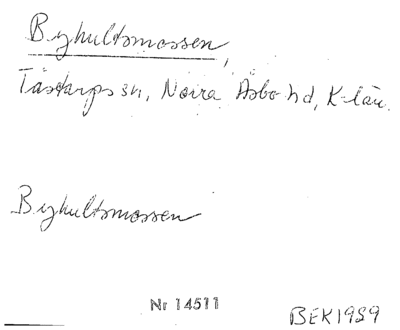 Byhultsmossen,
Tåstarps sn, Norra Åsbo hd, K-län.
Byhultsmossen
Nr 14511
BEK1989